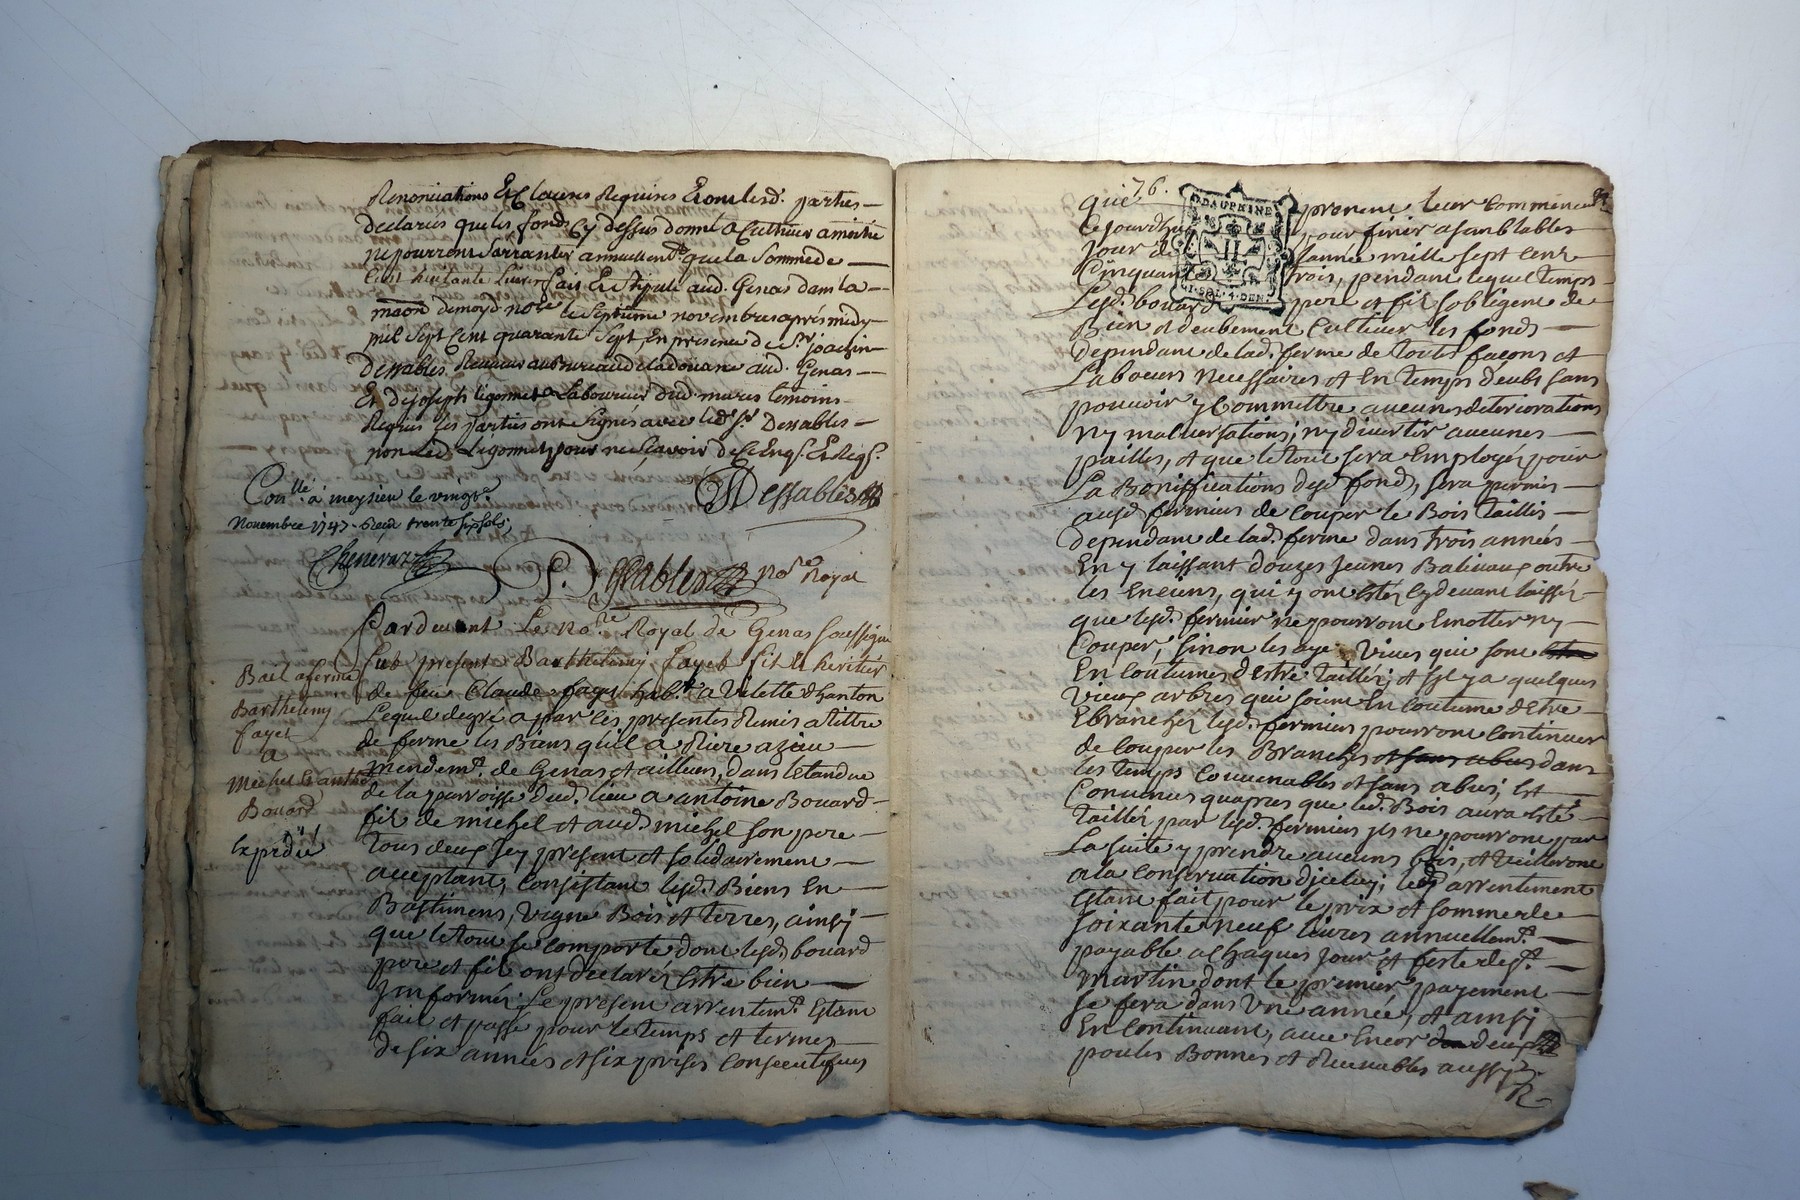 Renonciations Et Clauses Requises Et ont lesd. parties
declarées que les fonds Cy dessus donné a Cultiver a moitié
ne pourront Sarranter annuellemt. que la Somme de
Cent huitante Livres fait Et Stipulé aud. Genas dans la
maon de moyd. nore le Septieme novembre apres midy
mil Sept Cent quarante Sept, En presence de Sr. joachin
Dessables Receveur au Bureau de la doüane aud. Genas
Et de joseph ligonnet Laboureur dud. mures temoins
Requis les parties ont Signés avec led. Sr. Dessables
non Led. Ligonnet pour ne Sçavoir de Ce Enqs. Et Reqs.
Dessables
Conllé a meysieu le vingt
Novembre 1747. Reçu trente six sols.
Chenevaz
Dessables nore Royal
Pardevant Le Nore. Royal de Genas Soussigné
fut present Barthelemy fayet fils et heritier
de feu Claude fayet habt. a Vilette d'hanton
Lequel de gré a par les presentes Remis a tittre
de ferme les Biens qu'il a Riere azieu
mendemt. de Genas et ailleurs, dans letandue
de la parroisse dud. lieu a antoine Bouard
fils de michel et aud. michel son pere
tous deux Jcy present et solidairement
acceptant, Consistant lesd. Biens En
Bastimens, Vigne Bois et terres, ainsi
que le tout se comporte dont lesd. bouard
pere et fils ont declarez Estre bien
Jnformés. Le present arrentemt. Estant
fait et passé pour le temps et termes
de six années et six prises Consecutives
Bail a ferme
Barthelemy
fayet
a
Michel Et anthe
Bouard
Expedié
76.
que prenent leur commencem
Cejourdhuy pour finir a semblables
Jour de l'année mille sept cent
Cinquante trois, pendant lequel temps
Lesd. bouard pere et fils sobligent de
Bien et deubement Cultiver les fonds
dependant de lad. ferme de toutes façons et
Laboeurs necessaires et En temps deubs sans
pouvoir y Commettre aucunes deteriorations
ny malversations, ny divertir aucunes
pailles, et que le tout sera Employez pour
La Bonniffications desd fonds, sera permis
ausd fermiers de couper le Bois taillis
dependant de lad. ferme dans trois années
En y laissant douzes jeunes Baliveaux outre
les Enciens, qui y ont Estez Cydevant laissés
que lesd. fermier ne pourront Emotter ny
Couper, sinon les ayes Vives qui sont
En Coutumes d'Estre tailléz; et s'il y a quelques
Vieux arbres qui soient En Coutume d'Estre
Ebranchéz lesd. fermiers pourront Continuer
de Couper les Branches et sans abus dans
les temps Convenables et sans abus; Est
Convenus qu'apres que led. Bois aura Esté
tailléz par lesd. fermiers jls ne pourront par
La suite y prendre aucuns bois, et veilleront
a la Conservation d'jceluy; led arrentement
Estant fait pour le prix et somme de
Soixante neuf livres annuellemt.
payable a Chaques jour et feste de St.
Martin dont le premier payement
se fera dans Une année, et ainsi
En Continuant, avec Encor deux
poules Bonnes et Recevables aussy
DAUPHINE
SOL. 4. DEN.